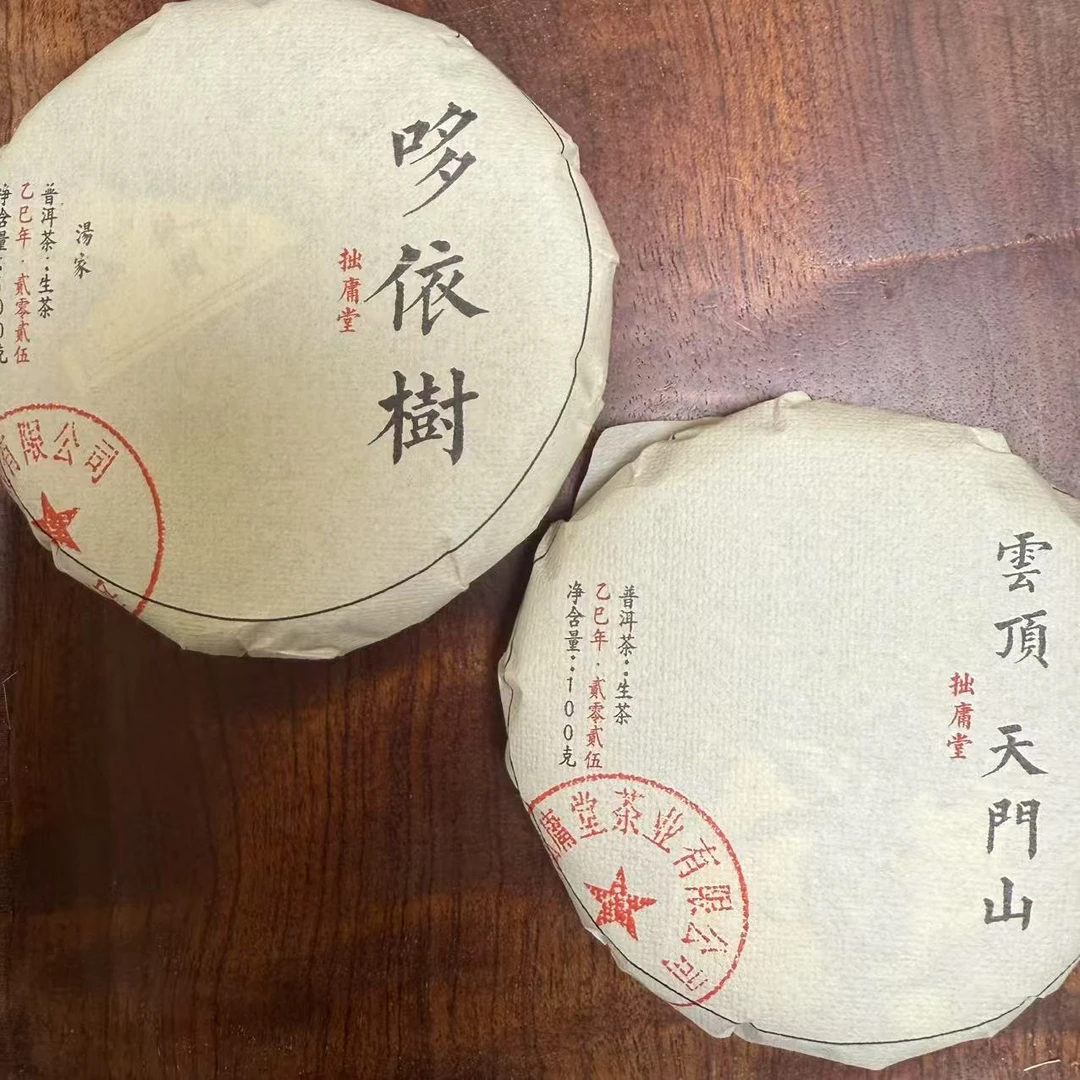 哆依樹
拙庸堂
湯家
普洱茶：生茶
乙巳年·貳零貳伍
净含量：100克
有限公司
雲頂 天門山
拙庸堂
普洱茶：生茶
乙巳年·貳零貳伍
净含量：100克
庸堂茶业有限公司